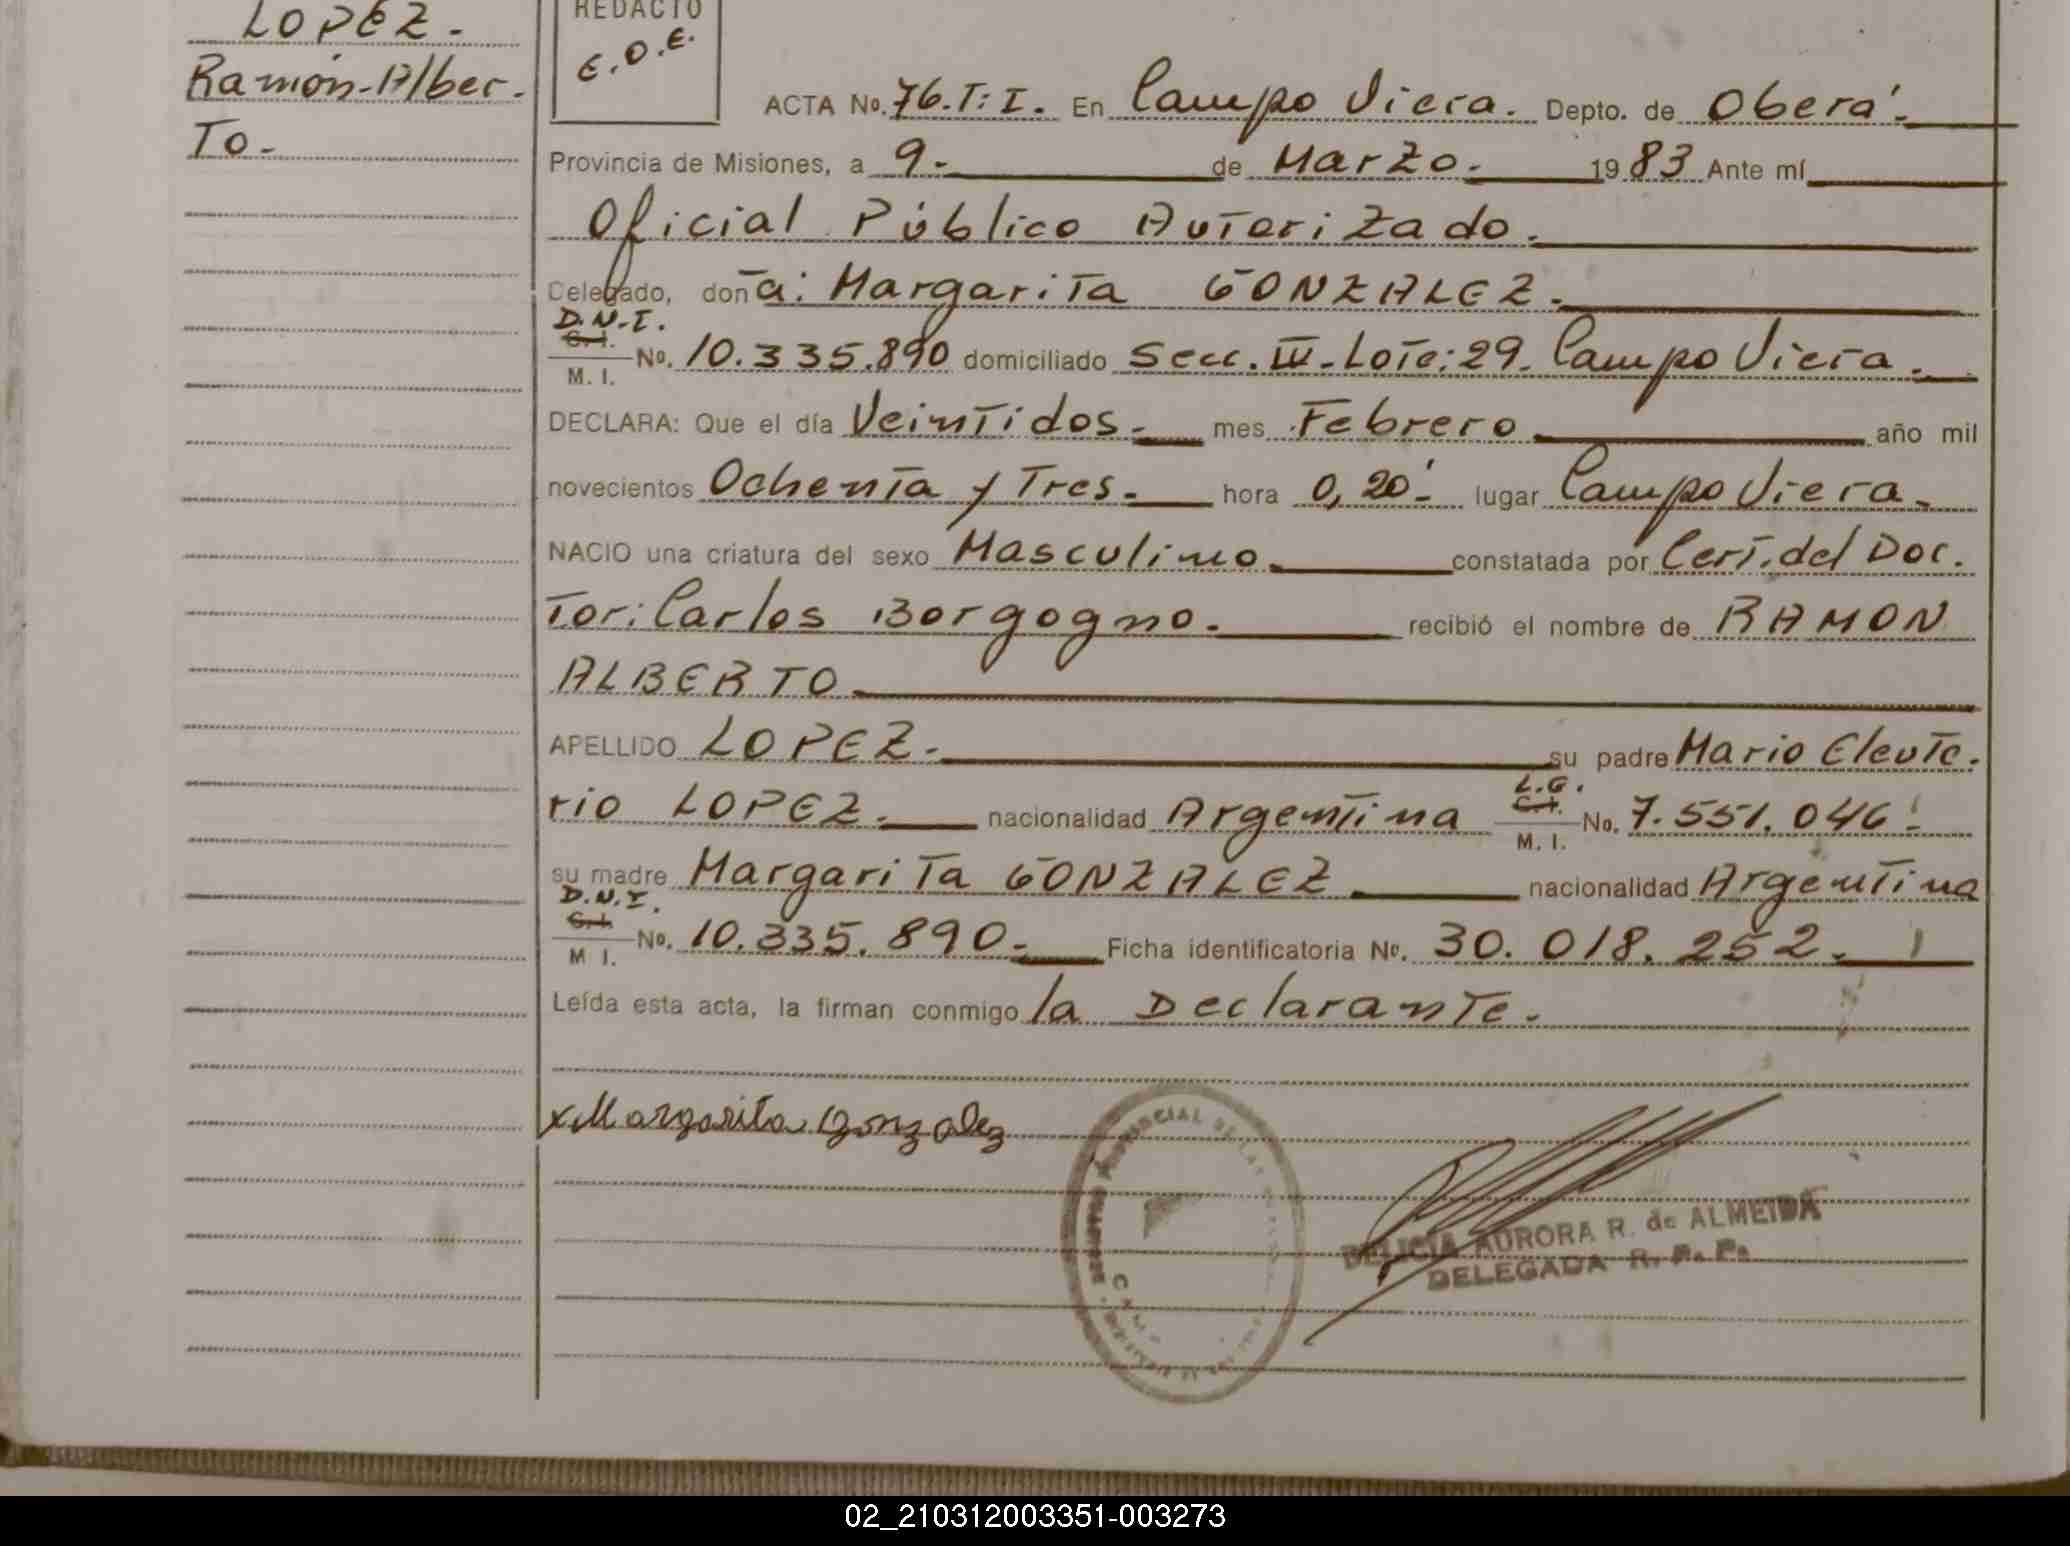 LOPEZ.
Ramón-Alber-
To.
REDACTO
E.O.E.
ACTA No. 76.T:I. En Campo Viera. Depto. de Oberá.
Provincia de Misiones, a 9. de Marzo. 1983 Ante mí
Oficial Público Autorizado.
Delegado, doña: Margarita GONZALEZ.
D.N.I.
C.I.
M. I.
No. 10.335.890 domiciliado Secc. III-Lote:29. Campo Viera.
DECLARA: Que el día Veintidos. mes Febrero año mil
novecientos Ochenta y Tres. hora 0,20' lugar Campo Viera.
NACIO una criatura del sexo Masculino constatada por Cert. del Doc.
Tor: Carlos Borgogno. recibió el nombre de RAMON
ALBERTO
APELLIDO LOPEZ. su padre Mario Eleute.
L.E.
C.I.
M. I.
rio LOPEZ. nacionalidad Argentina No. 7.551.046.
su madre Margarita GONZALEZ nacionalidad Argentina
D.N.I.
C.I.
M I.
No. 10.335.890. Ficha identificatoria No. 30.018.252.
Leída esta acta, la firman conmigo la Declarante.
x Margarita Gonzalez
DELICIA AURORA R. de ALMEIDA
DELEGADA R. P. P.
02_210312003351-003273